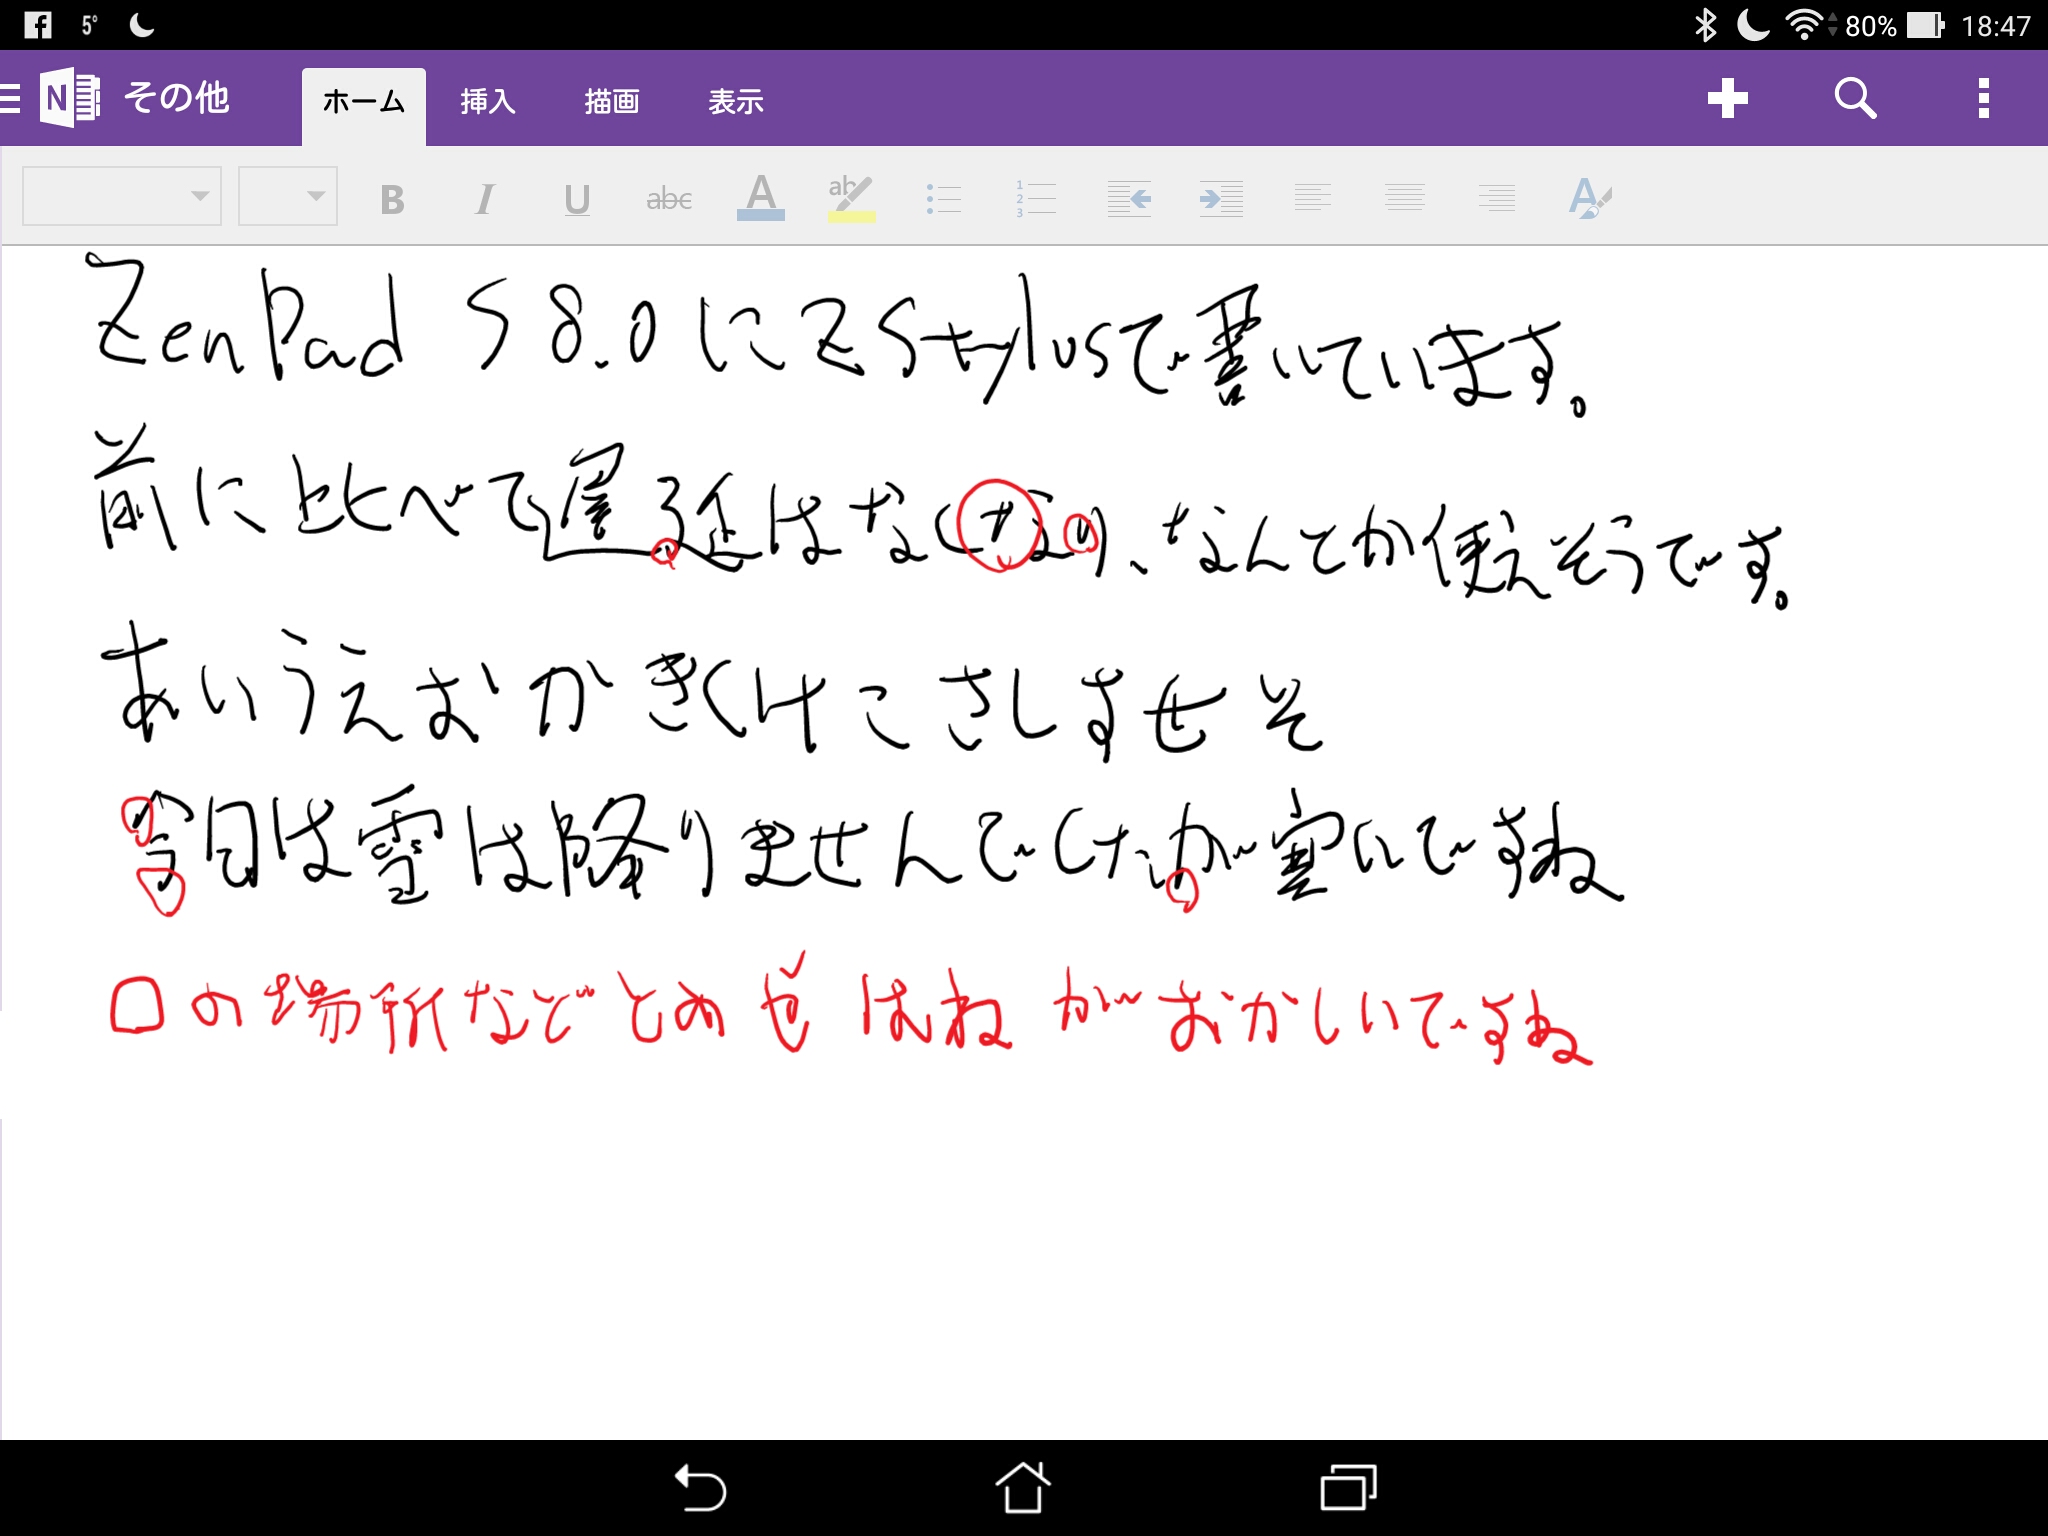 5°
80% 18:47
その他 ホーム 挿入 描画 表示
B I U abc A ab 1 2 3 A
ZenPad S 8.0 に Z Stylusで書いています。
前に比べて遅延はなくなり、なんとか使えそうです。
あいうえおかきくけこさしすせそ
今日は雪は降りませんでしたが寒いですね
○の場所などとめやはねがおかしいですね